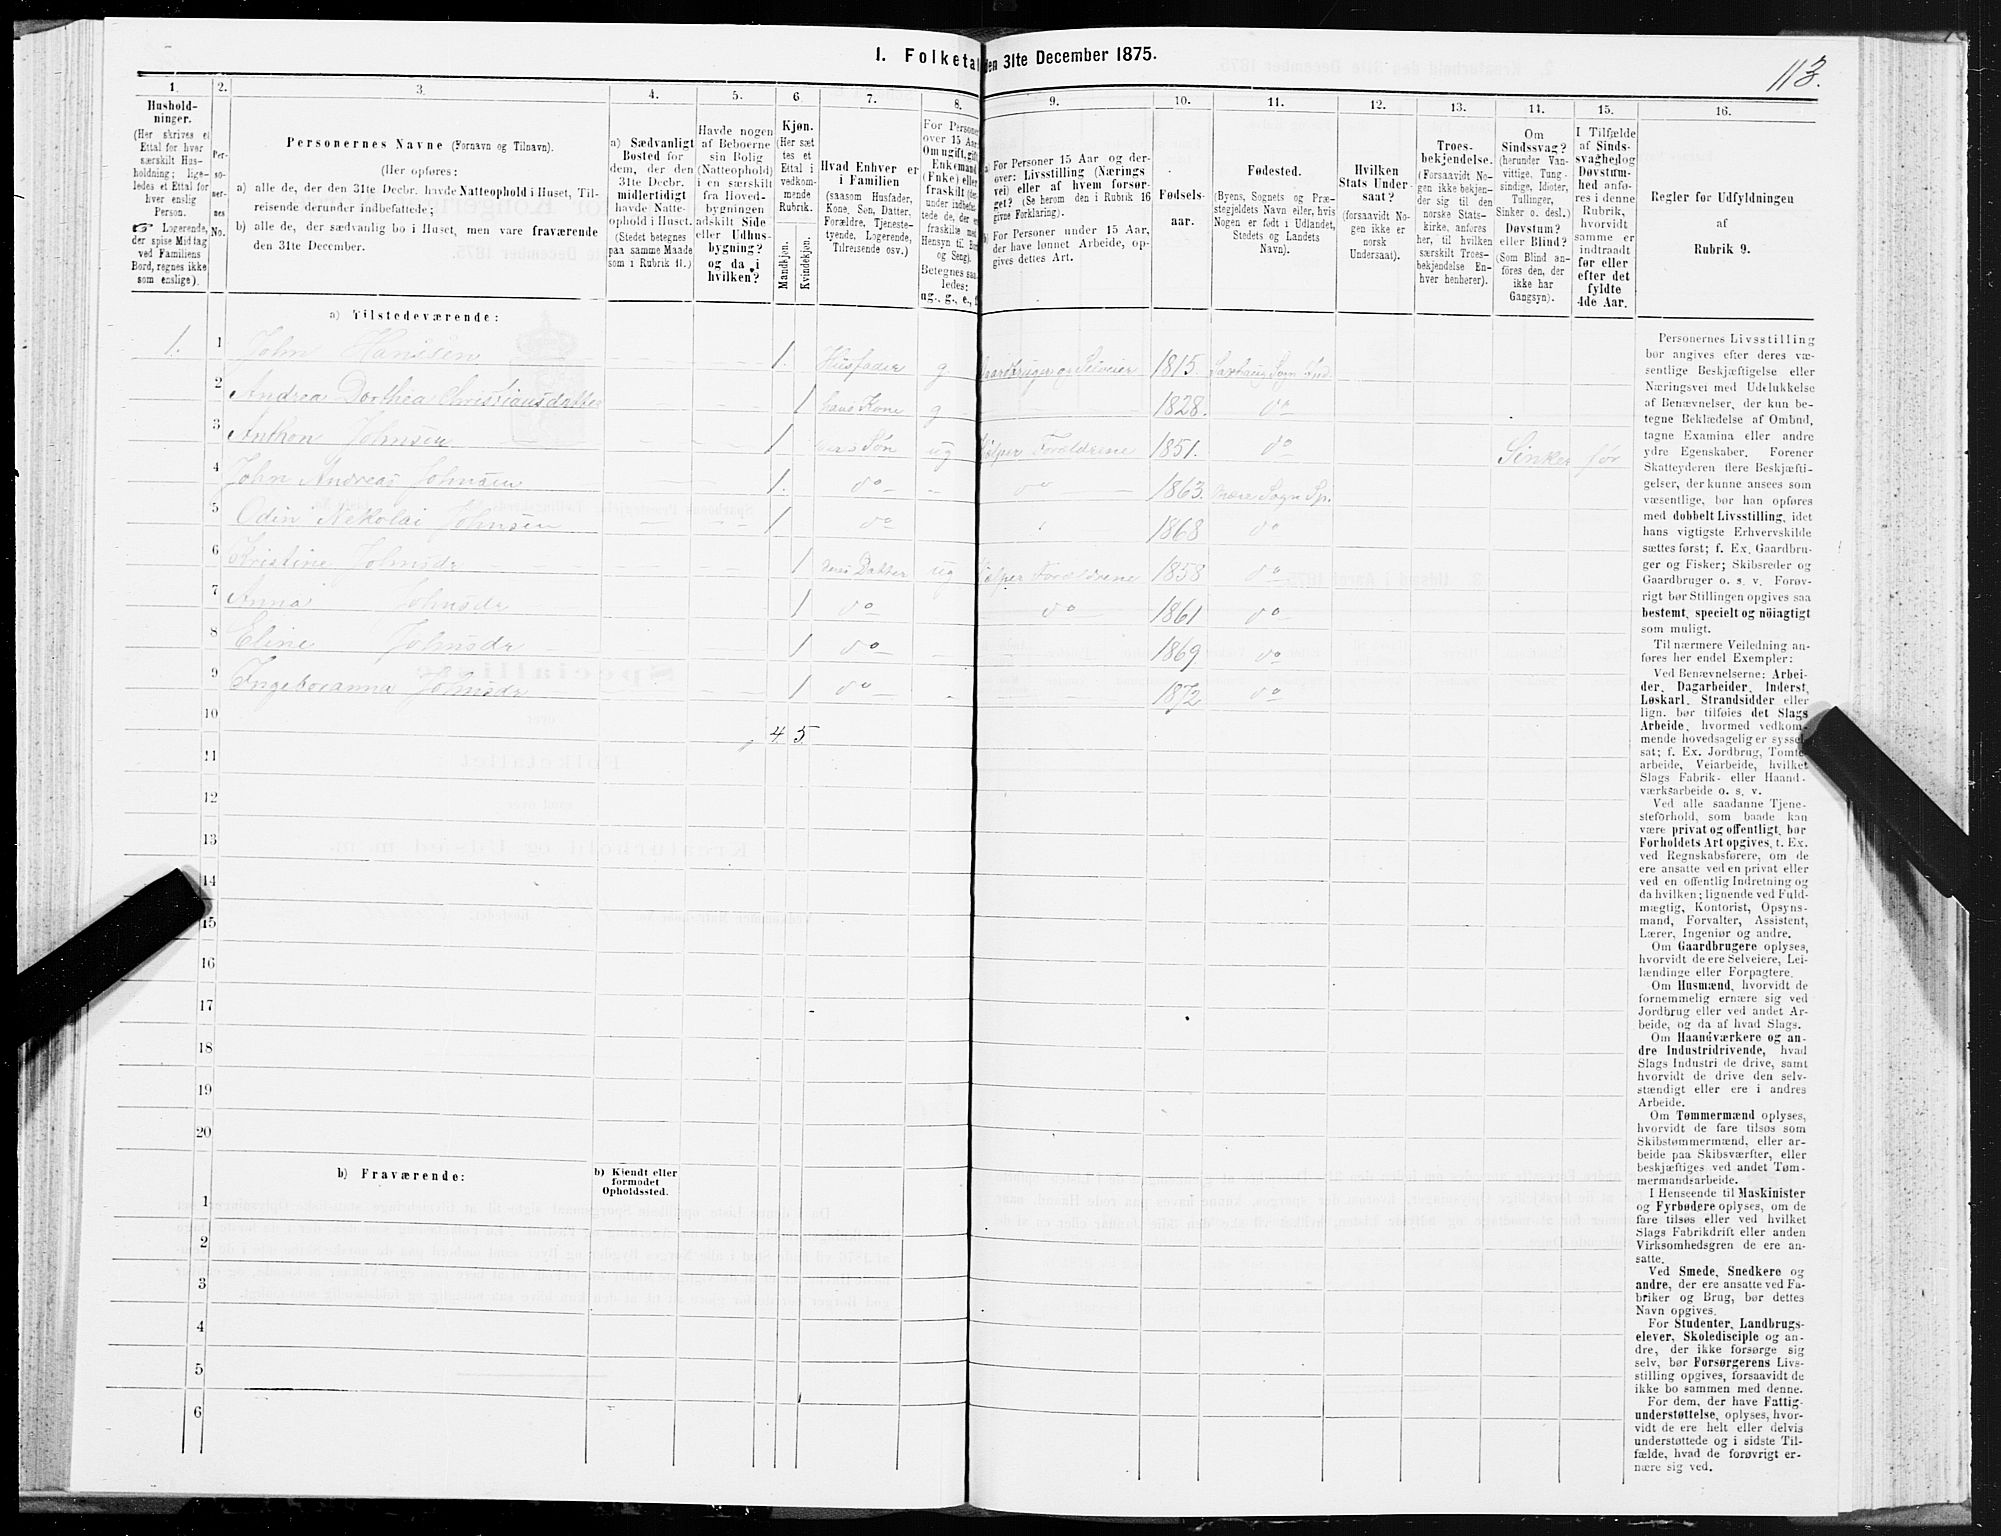 113.
1. Folketal den 31te December 1875.
1. 2. 3. 4. 5. 6 7. 8. 9. 10. 11. 12. 13. 14. 15. 16.
Hushold-
ninger.
(Her skrives et
Ettal for hver
særskilt Hus-
holdning; lige-
ledes et Ettal for
hver enslig
Person.
☞ Logerende,
der spise Middag
ved Familiens
Bord, regnes ikke
som enslige).
Per-
so-
ner-
nes
No.
Personernes Navne (Fornavn og Tilnavn).
(Her opføres:
a) alle de, der den 31te Decbr. havde Natteophold i Huset, Til-
reisende derunder indbefattede;
b) alle de, der sædvanlig bo i Huset, men vare fraværende
den 31te December.
a) Sædvanligt
Bosted for
dem, der den
31te Decbr.
midlertidigt
havde Natte-
ophold i Huset.
(Stedet betegnes
paa samme Maade
som i Rubrik 11.)
Havde nogen
af Beboerne
sin Bolig
(Natteophold)
i en særskilt
fra Hoved-
bygningen
adskilt Side
eller Udhus-
bygning?
og da i
hvilken?
Kjøn.
(Her sæt-
tes et
Ettal i
vedkom-
mende
Rubrik.
Mandkjøn.
Kvindekjøn.
Hvad Enhver er
i Familien
(saasom Husfader,
Kone, Søn, Datter,
Forældre, Tjeneste-
tyende, Logerende,
Tilreisende osv.)
For Personer
over 15 Aar:
Om ugift, gift,
Enkemand
(Enke) eller
fraskilt (der-
under indbefat-
tede de, der er
fraskilte med
Hensyn til Bord
og Seng).
Betegnes saa-
ledes:
ug., g., e., f.
a) For Personer 15 Aar og der-
over: Livsstilling (Nærings-
vei) eller af hvem forsør-
get? (Se herom den i Rubrik 16
givne Forklaring).
b) For Personer under 15 Aar,
der have lønnet Arbeide, op-
gives dettes Art.
Fødsels-
aar.
Fødested.
(Byens, Sognets og Præ-
stegjeldets Navn eller, hvis
Nogen er født i Udlandet,
Stedets og Landets
Navn).
Hvilken
Stats Under-
saat?
(forsaavidt No-
gen ikke er
norsk
Undersaat).
Troes-
bekjendelse.
(Forsaavidt No-
gen ikke bekjen-
der sig til den
norske Stats-
kirke, anføres
her, til hvilken
særskilt Troes-
bekjendelse En-
hver henhører).
Om
Sindssvag?
(herunder Van-
vittige, Tung-
sindige, Idioter,
Tullinger,
Sinker o. desl.)
Døvstum?
eller Blind?
(Som Blind an-
føres den, der
ikke har
Gangsyn).
I Tilfælde
af Sinds-
svaghed og
Døvstum-
hed anfø-
res i denne
Rubrik,
hvorvidt
samme er
indtraadt
før eller
efter det
fyldte
4de Aar.
Regler for Udfyldningen
af
Rubrik 9.
a) Tilstedeværende:
1. 1 John Hanssen 1. Husfader g Gaardbruger og Selveier 1815.
2 Andrea Dorthea Christiansdatter 1 hans Kone g 1828. do
3 Anthon Johnsen 1 deres Søn ug hjælper Forældrene 1851. do Sinker før
4 John Andreas Johnsen 1. do do 1863.
5 Odin Nekolai Johnsen 1 do 1868 do
6 Kristine Johnsdr 1 deres Datter ug hjælper Forældrene 1858 do
7 Anna Johnsdr 1 do do 1861 do
8 Eline Johnsdr 1 do 1869 do
9 Ingeboranna Johnsdr 1 do 1872 do
10 4 5
11
12
13
14
15
16
17
18
19
20
b) Fraværende:
b) Kjendt eller
formodet
Opholdssted.
1
2
3
4
5
6
Personernes Livsstilling
bør angives efter deres væ-
sentlige Beskjæftigelse eller
Næringsvei med Udelukkelse
af Benævnelser, der kun be-
tegne Beklædelse af Ombud,
tagne Examina eller andre
ydre Egenskaber. Forener
Skatteyderen flere Beskjæfti-
gelser, der kunne ansees som
væsentlige, bør han opføres
med dobbelt Livsstilling, idet
hans vigtigste Erhvervskilde
sættes først; f. Ex. Gaardbru-
ger og Fisker; Skibsreder og
Gaardbruger o. s. v. Forøv-
rigt bør Stillingen opgives saa
bestemt, specielt og nöiagtigt
som muligt.
Til nærmere Veiledning an-
føres her endel Exempler:
Ved Benævnelserne: Arbei-
der, Dagarbeider, Inderst,
Løskarl, Strandsidder eller
lign. bør tilføies det Slags
Arbeide, hvormed vedkom-
mende hovedsagelig er syssel-
sat; f. Ex. Jordbrug, Tomte-
arbeide, Veiarbeide, hvilket
Slags Fabrik- eller Haand-
værksarbeide o. s. v.
Ved alle saadanne Tjene-
steforhold, som baade kan
være privat og offentligt, bør
Forholdets Art opgives, t. Ex.
ved Regnskabsførere, om de
ere ansatte ved en privat eller
ved en offentlig Indretning og
da hvilken; lignende ved Fuld-
mægtig, Kontorist, Opsyns-
mand, Forvalter, Assistent,
Lærer, Ingeniør og andre.
Om Gaardbrugere oplyses,
hvorvidt de ere Selveiere, Lei-
lændinge eller Forpagtere.
Om Husmænd, hvorvidt de
fornemmelig ernære sig ved
Jordbrug eller ved andet Ar-
beide, og da af hvad Slags.
Om Haandværkere og an-
dre Industridrivende, hvad
Slags Industri de drive, samt
hvorvidt de drive den selv-
stændigt eller ere i andres
Arbeide.
Om Tømmermænd oplyses,
hvorvidt de fare tilsøs som
Skibstømmermænd, eller ar-
beide paa Skibsværfter, eller
beskjæftiges ved andet Tøm-
mermandsarbeide.
I Henseende til Maskinister
og Fyrbødere oplyses, om de
fare tilsøs eller ved hvilket
Slags Fabrikdrift eller anden
Virksomhedsgren de ere an-
satte.
Ved Smede, Snedkere og
andre, der ere ansatte ved Fa-
briker og Brug, bør dettes
Navn opgives.
For Studenter, Landbrugs-
elever, Skoledisciple og an-
dre, der ikke forsørge sig
selv, bør Forsørgerens Livs-
stilling opgives, forsaavidt de
ikke bo sammen med denne.
For dem, der have Fattig-
understøttelse, oplyses, hvor-
vidt de ere helt eller delvis
understøttede og i sidste Til-
fælde, hvad de forøvrigt er-
nære sig ved.